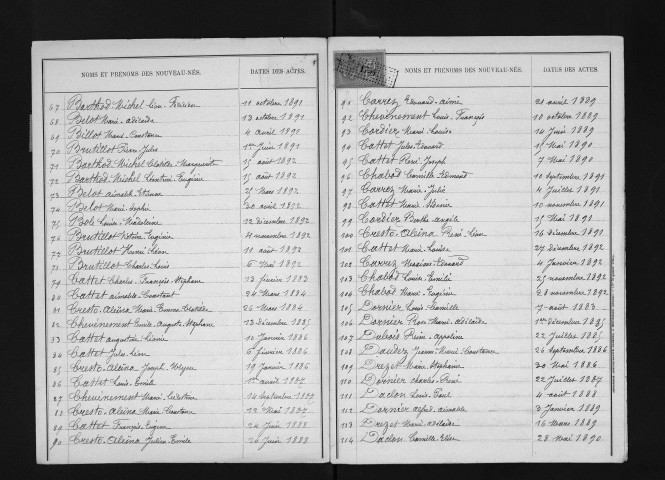 NOMS ET PRÉNOMS DES NOUVEAU-NÉS. DATES DES ACTES.
67 Barthod-Michel Léon 11 octobre 1891
68 Belot Marie-adélaïde 13 octobre 1891
69 Billot Marie-Constance 4 avril 1891
70 Brutillot Pierre-Jules 1er Juin 1891
71 Barthod-Michel Clotilde-Marguerite 15 août 1892
72 Barthod-Michel Léontine-Eugénie 15 août 1892
73 Belot aimable-Etienne 21 Mars 1892
74 Belot Marie-Sophie 20 août 1892
75 Bole Louise-Madeleine 22 décembre 1892
76 Brutillot Eugénie 4 novembre 1892
77 Brutillot Henri-Léon 11 août 1892
78 Brutillot Charles-Louis 6 Mai 1892
79 Cattet Charles-François-Stéphane 13 février 1883
80 Cattet aimable-Constant 24 Mars 1884
81 Cresto-Aleïna Marie-Emma-Clotilde 26 Mars 1884
82 Chevènement Emile-Auguste-Stéphane 13 décembre 1885
83 Cattet augustin-Léonie 10 Janvier 1886
84 Cattet Jules-Léon 6 février 1886
85 Cresto-Aleïna Joseph 19 Janvier 1886
86 Cattet Louis-Emile 1er avril 1887
87 Chevènement Marie-Célestine 14 septembre 1887
88 Cresto-Aleïna Marie-Constance 12 Mai 1887
89 Cattet François-Eugène 24 Juin 1888
90 Cresto-Aleïna Julien-Emile 26 Juin 1888
NOMS ET PRÉNOMS DES NOUVEAU-NÉS. DATES DES ACTES.
91 Carrez Edmond-aimé 21 avril 1889
92 Chevènement Louis-François 10 octobre 1889
93 Cordier Marie-Louise 14 Juin 1889
94 Cattet Jules-Edmond 15 Mai 1890
95 Cattet René-Joseph 7 Mai 1890
96 Chabod Camille-Edmond 10 septembre 1891
97 Carrez Marie-Julie 4 Juillet 1891
98 Cattet Marie 10 novembre 1891
99 Cordier Berthe-angèle 15 Mai 1891
100 Cresto-Aleïna René-Léon 16 décembre 1891
101 Cattet Marie-Louise 27 décembre 1892
102 Carrez Maxime-Edouard 4 Janvier 1892
103 Chabod Louis-Emile 25 novembre 1892
104 Chabod Marie-Eugénie 28 novembre 1892
105 Dornier Louis-Camille 7 août 1883
106 Dornier Rose-Marie-adélaïde 1er décembre 1885
107 Dubois Reine-appoline 22 Juillet 1885
108 Jeanne-Marie-Constance 26 septembre 1886
109 Drezet Marie-Stéphanie 30 Mai 1886
110 Dornier Charles-René 22 Juillet 1887
111 Daclon Louis-Paul 4 août 1888
112 Dornier alfred-aimable 3 Janvier 1889
113 Drezet Marie-adélaïde 16 Mars 1889
114 Daclon Camille-Elise 28 Mai 1890